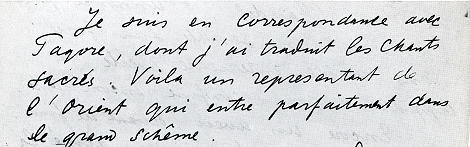 Je suis en correspondance avec
Tagore, dont j'ai traduit les Chants
sacrés. Voila un representant de
l'Orient qui entre parfaitement dans
le grand schême.